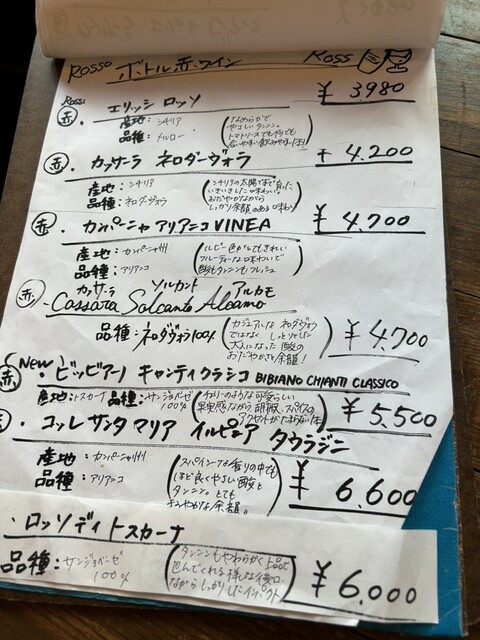 Rosso ボトル赤ワイン Ross
Rossi
赤・エリッシ ロッソ ¥3980
産地：シチリア
品種：メルロー
なめらかで
やさしいタンニン。
トマトソースでも何でも
合いやすい飲みやすい1本!
赤・カッサーラ ネロダーヴォラ ¥4.200
産地：シチリア
品種：ネロダヴォラ
シチリアの太陽で
いきいきした味わい。
おだやかながら
しっかり余韻のある味わい
赤・カンパーニャ アリアニコ VINEA ¥4.700
産地：カンパーニャ州
品種：アリアニコ
ルビー色がとてもきれい
フルーティーな味わいで
酸もタンニンもフレッシュ
カッサーラ ソルカント アルカモ
赤・Cassara Solcanto Alcamo
品種：ネロダヴォラ100% ¥4.700
カジュアルなネロダヴォラ
ではなく しっとりした
大人になった酸の
おだやかさと余韻！
New
赤・ビッビアーノ キャンティクラシコ BIBIANO CHIANTI CLASSICO
産地：トスカーナ 品種：サンジョベーゼ 100% ¥5.500
チェリーのような可愛らしい
果実感ながら 胡椒、スパイスの
アクセントがたまらない1本
・コッレ サンタ マリア イルピーア タウラジーニ
産地：カンパーニャ州
品種：アリアニコ ¥6.600
スパイシーな香りの中でも
ほど良くやさしい酸と
タンニン。とても
まろやかな余韻。
・ロッソ ディ トスカーナ
品種：サンジョベーゼ
100% ¥6.000
タンニンもやわらかく
包んでくれる様な後口
ながら しっかりしたインパクト